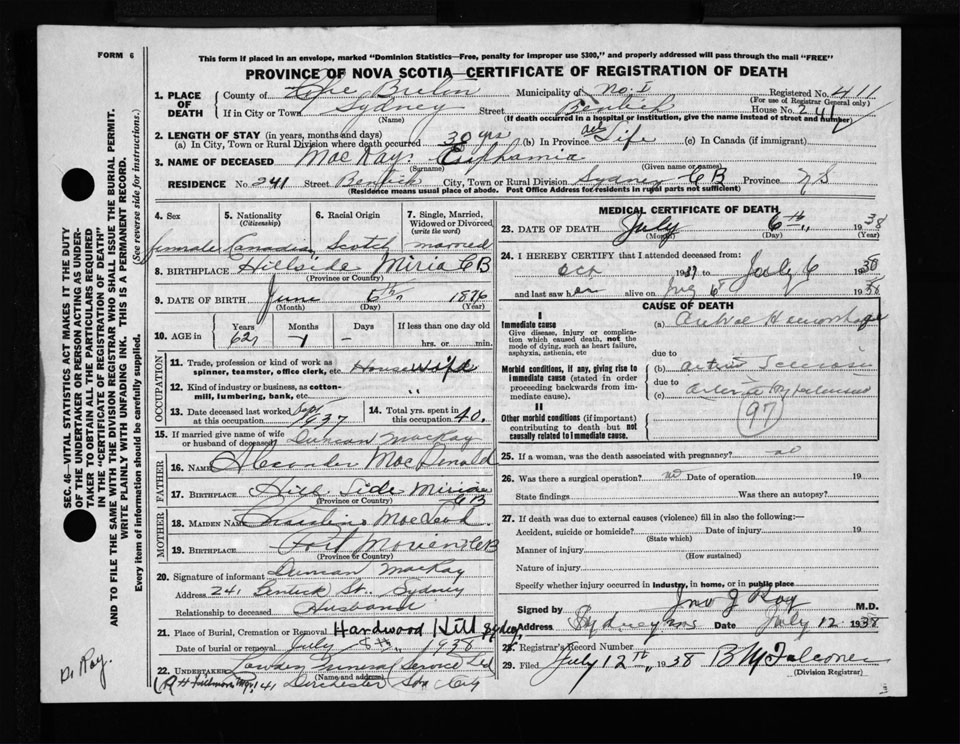 FORM 6
This form if placed in an envelope, marked "Dominion Statistics—Free, penalty for improper use $300," and properly addressed will pass through the mail "FREE"
PROVINCE OF NOVA SCOTIA—CERTIFICATE OF REGISTRATION OF DEATH
1. PLACE OF DEATH County of Cape Breton Municipality of No. 1 Registered No. 411
(For use of Registrar General only)
If in City or Town Sydney Street Bentick House No. 241
(Name) (If death occurred in a hospital or institution, give the name instead of street and number)
2. LENGTH OF STAY (in years, months and days)
(a) In City, Town or Rural Division where death occurred 30 yrs (b) In Province all Life (c) In Canada (if immigrant)
3. NAME OF DECEASED MacKay Euphamia
(Surname) (Given name or names)
RESIDENCE No. 241 Street Bentick City, Town or Rural Division Sydney CB Province NS
(Residence means usual place of abode. Post Office Address for residents in rural parts not sufficient)
4. Sex 5. Nationality (Citizenship) 6. Racial Origin 7. Single, Married, Widowed or Divorced (write the word)
female Canadian Scotch married
8. BIRTHPLACE Hillside Miria CB
(Province or Country)
9. DATE OF BIRTH June 6th 1876
(Month) (Day) (Year)
10. AGE in Years Months Days If less than one day old
62 1 - hrs. or min.
OCCUPATION
11. Trade, profession or kind of work as spinner, teamster, office clerk, etc. Housewife
12. Kind of industry or business, as cotton-mill, lumbering, bank, etc. "
13. Date deceased last worked at this occupation Sept 1937 14. Total yrs. spent in this occupation 40.
15. If married give name of wife or husband of deceased Duncan MacKay
FATHER
16. NAME Alexander MacDonald
17. BIRTHPLACE Hill Side Miria CB
(Province or Country)
MOTHER
18. MAIDEN NAME MacLeod
19. BIRTHPLACE Port Morien CB
(Province or Country)
20. Signature of informant Duncan MacKay
Address 241 Bentick St. Sydney
Relationship to deceased Husband
21. Place of Burial, Cremation or Removal Hardwood Hill Sydney
Date of burial or removal July 8th 1938
22. Undertaker Funeral Service Ltd
(Name and address)
141 Dorchester City
MEDICAL CERTIFICATE OF DEATH
23. DATE OF DEATH July 6th 1938
(Month) (Day) (Year)
24. I HEREBY CERTIFY that I attended deceased from:
Oct 1937 to July 6 1938
and last saw her alive on July 6 1938
CAUSE OF DEATH
I
Immediate cause (a) Hemorrhage
Give disease, injury or complication which caused death, not the mode of dying, such as heart failure, asphyxia, asthenia, etc
due to
Morbid conditions, if any, giving rise to immediate cause (stated in order proceeding backwards from immediate cause). (b)
due to
(c)
97
II
Other morbid conditions (if important) contributing to death but not causally related to immediate cause.
25. If a woman, was the death associated with pregnancy? no
26. Was there a surgical operation? no Date of operation 19
State findings Was there an autopsy?
27. If death was due to external causes (violence) fill in also the following:—
Accident, suicide or homicide? Date of injury 19
(State which)
Manner of injury
(How sustained)
Nature of injury
Specify whether injury occurred in industry, in home, or in public place
Signed by Jno J Roy M.D.
Address Sydney NS Date July 12 1938
28. Registrar's Record Number
29. Filed July 12th 1938 B Falconer
(Division Registrar)
SEC. 46—VITAL STATISTICS ACT MAKES IT THE DUTY OF THE UNDERTAKER OR PERSON ACTING AS UNDERTAKER TO OBTAIN ALL THE PARTICULARS REQUIRED IN THE "CERTIFICATE OF REGISTRATION OF DEATH" AND TO FILE THE SAME WITH THE DIVISION REGISTRAR WHO SHALL ISSUE THE BURIAL PERMIT.
WRITE PLAINLY WITH UNFADING INK. THIS IS A PERMANENT RECORD.
Every item of information should be carefully supplied. (See reverse side for instructions.)
Dr Roy.